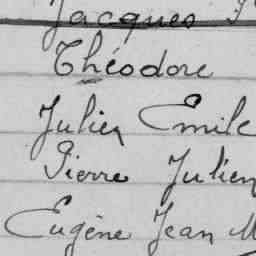 Jacques
Théodore
Julien Emile
Pierre Julien
Eugène Jean M